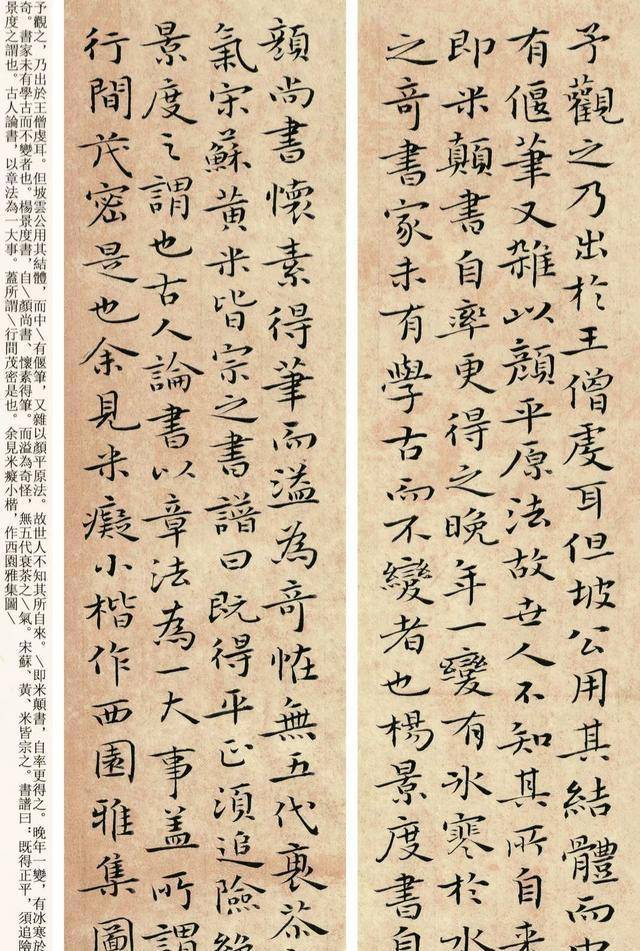 予觀之乃出於王僧虔耳但坡公用其結體而中
有偃筆又雜以顏平原法故世人不知其所自来
即米顛書自率更得之晚年一變有冰寒於水
之奇書家未有學古而不變者也楊景度書自
顏尚書懷素得筆而溢為奇怪無五代衰苶
氣宋蘇黃米皆宗之書譜曰既得平正須追險絕
景度之謂也古人論書以章法為一大事蓋所謂
行間茂密是也余見米癡小楷作西園雅集圖
予觀之，乃出於王僧虔耳。但坡雲公用其結體，而中\有偃筆，又雜以顏平原法。故世人不知其所自來。\即米顛書，自率更得之。晚年一變，有冰寒於
奇。書家未有學古而不變者也。楊景度書，自\顏尚書、懷素得筆。而溢為奇怪，無五代衰茶之\氣。宋蘇、黃、米皆宗之。書譜曰：既得正平，須追險
景度之謂也。古人論書，以章法為一大事。蓋所謂\行間茂密是也。余見米癡小楷，作西園雅集圖\